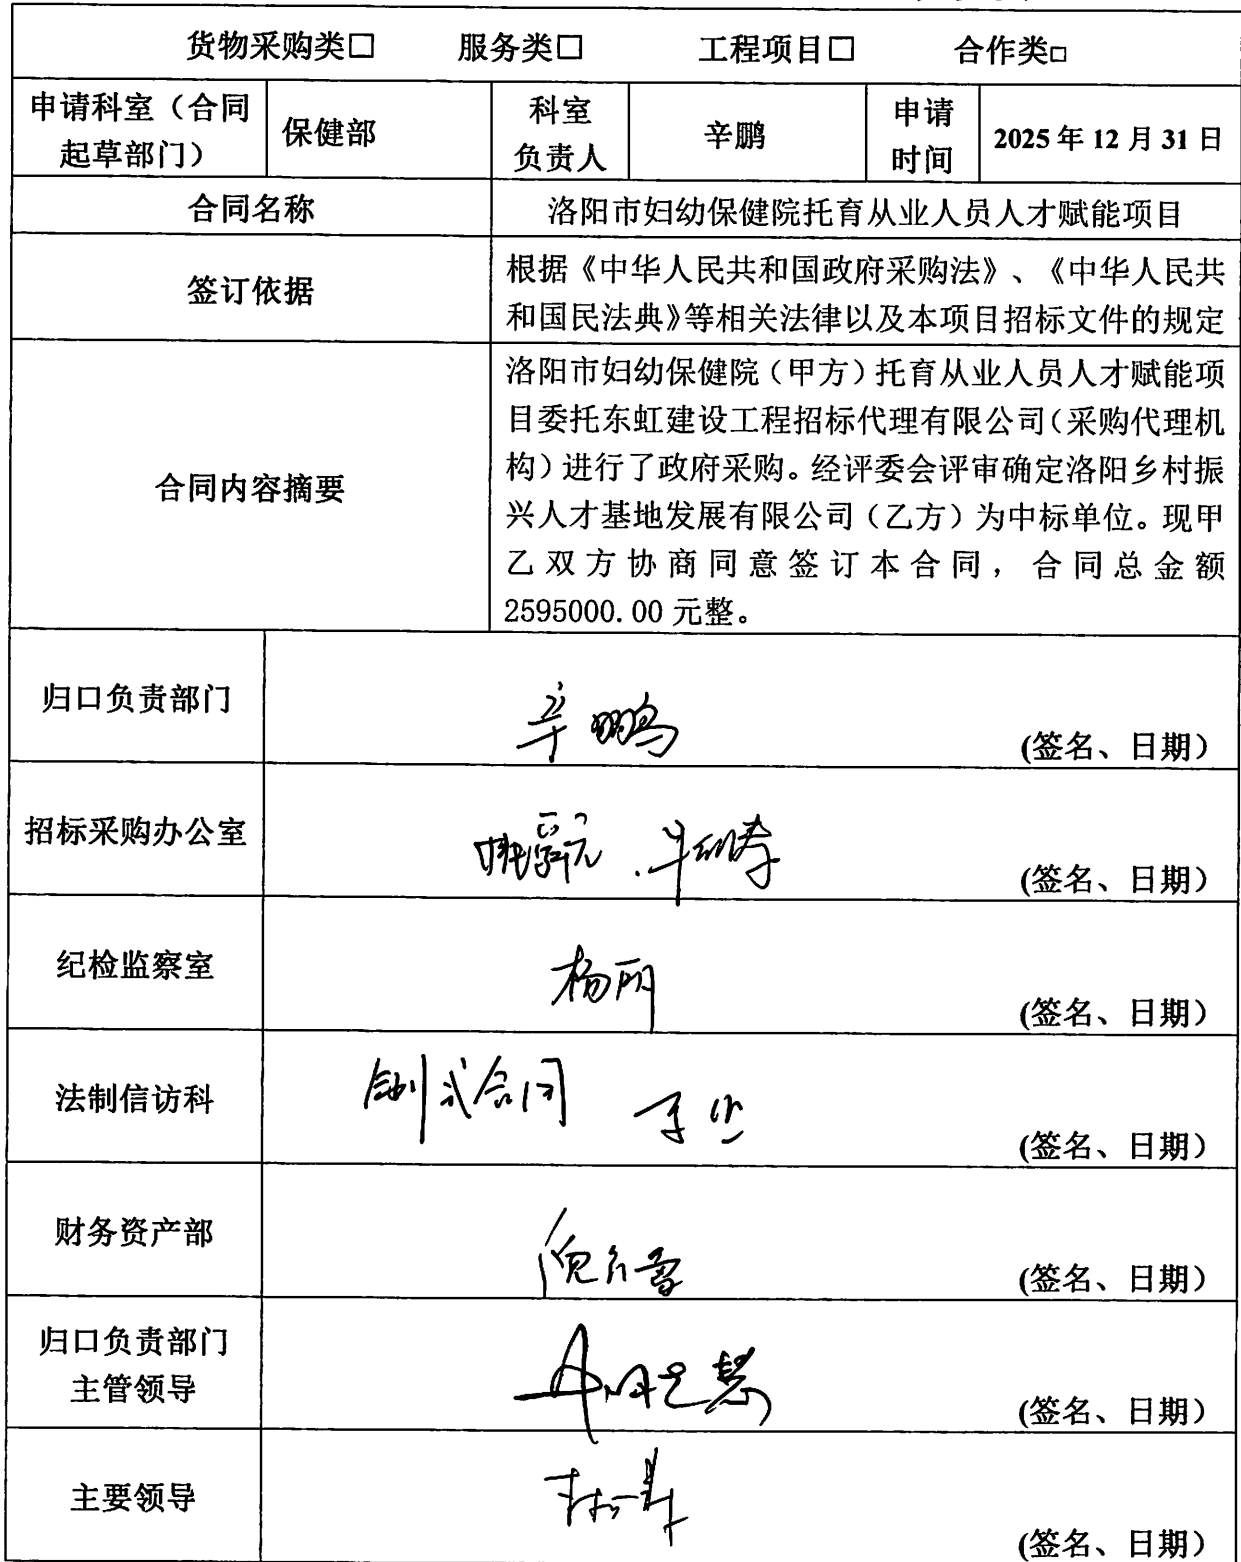 货物采购类□ 服务类□ 工程项目□ 合作类□
申请科室（合同起草部门） 保健部 科室负责人 辛鹏 申请时间 2025年12月31日
合同名称 洛阳市妇幼保健院托育从业人员人才赋能项目
签订依据
根据《中华人民共和国政府采购法》、《中华人民共
和国民法典》等相关法律以及本项目招标文件的规定
合同内容摘要
洛阳市妇幼保健院（甲方）托育从业人员人才赋能项
目委托东虹建设工程招标代理有限公司（采购代理机
构）进行了政府采购。经评委会评审确定洛阳乡村振
兴人才基地发展有限公司（乙方）为中标单位。现甲
乙双方协商同意签订本合同，合同总金额
2595000.00元整。
归口负责部门 辛鹏 (签名、日期）
招标采购办公室 (签名、日期）
纪检监察室 (签名、日期）
法制信访科 制式合同 (签名、日期）
财务资产部 (签名、日期）
归口负责部门
主管领导 (签名、日期）
主要领导 (签名、日期）